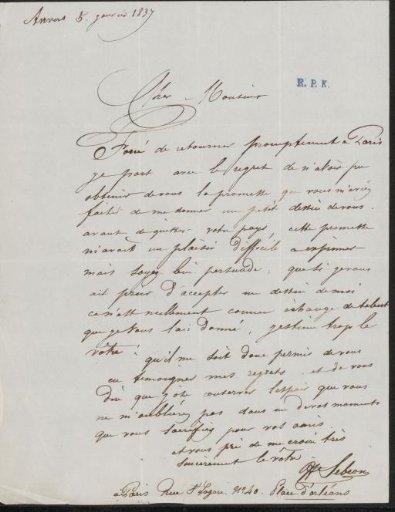 Anvers 8 janvier 1837
E. P. K.
Cher Monsieur
Forcé de retourner promptement a Paris
je part avec le regret de n'avoir pu
obtenir de vous la promesse que vous m'aviez
faite de me donner un petit dessin de vous
avant de quitter votre pays, cette promesse
m'avait un plaisir difficile a exprimer
mais soyez bien persuadé, que si je vous
ait prier d'accepter un dessin de moi
ce n'est nullement comme échange de talent
que je vous l'ai donné, j'estime trop le
vôtre. qu'il me soit donc permis de vous
en temoigner mes regrets et de vous
dire que j'ose conserver l'espoir que vous
ne m'oublirez pas dans un de vos moments
que vous sacrifiez pour vos amis
et vous prie de me croire très
sincerement le vôtre
Hte Sebron
a Paris Rue St Lazare No 40. Place d'orléans